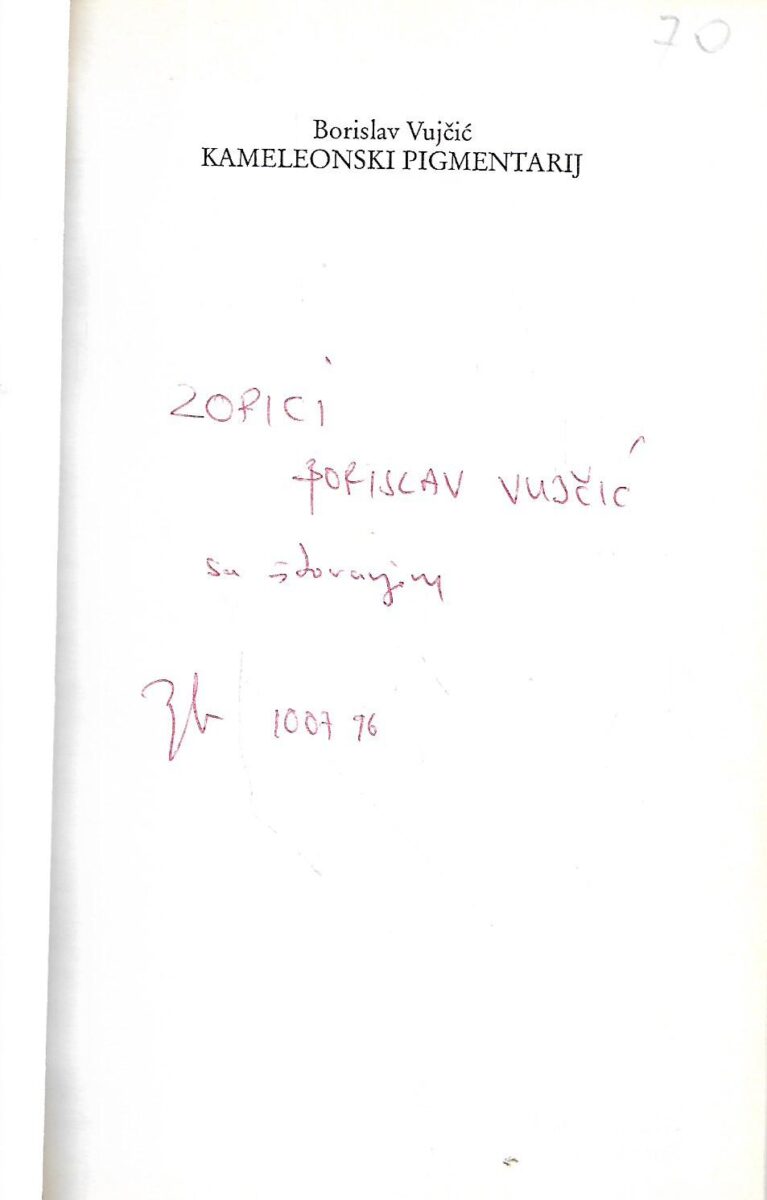 70
Borislav Vujčić
KAMELEONSKI PIGMENTARIJ
ZORICI
BORISLAV VUJČIĆ
sa štovanjem
Zb 10 07 96